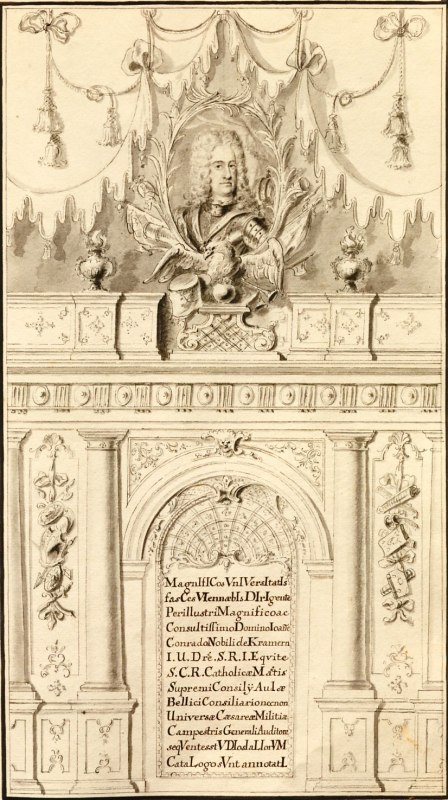 MagnIfICos VnIVersItatIs
fasCes VIennæbIs DIrIgente
Perillustri Magnifico ac
Consultissimo Domino Ioañe
Conrado Nobili de Kramern
I. U. Drê. S. R. I. Eqvite
S. C. R. Catholicæ Mstis
Supremi Consilÿ Aulæ
Bellici Consiliario necnon
Universæ Cæsareæ Militiæ
Campestris Generali Auditore
seqVentes stVDIodaLIorVM
CataLogos Vnt annotatI.